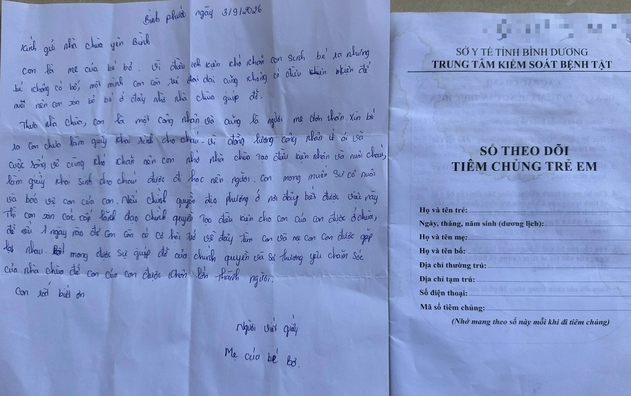 Bình phước ngày 3/9/2026
Kính gửi nhà chùa yên Bình
Con là mẹ của bé bỏ. vì điều kiện khó khăn con sinh bé ra nhưng
bé không có bố, một mình con còn cũng không có điều kiện để
nuôi nên con bỏ bé ở đây nhờ nhà chùa giúp đỡ.
Thưa nhà chùa, con là một công nhân và cũng là người mẹ đơn thân xin bé
ra con chưa làm giấy khai sinh cho cháu. vì đồng lương công nhân ít ỏi và
cuộc sống vô cùng khó khăn nên con nhờ nhà chùa tạo điều kiện nhận và nuôi cháu,
làm giấy khai sinh cho cháu được đi học nên người. Con mong muốn sư cô nuôi
và bảo vệ con của con. Nếu chính quyền địa phương ở nơi đây biết được việc này
Thì con xin các cấp lãnh đạo chính quyền Tạo điều kiện cho con của con được ở chùa,
để sau 1 ngày nào đó con có cơ hội trở về đây tìm con và mẹ con con được gặp
lại nhau. mong được sự giúp đỡ của chính quyền và sự thương yêu chăm sóc
của nhà chùa để con của con được khôn lớn thành người.
Con rất biết ơn
Người viết giấy
Mẹ của bé bỏ.
SỞ Y TẾ TỈNH BÌNH DƯƠNG
TRUNG TÂM KIỂM SOÁT BỆNH TẬT
SỔ THEO DÕI
TIÊM CHỦNG TRẺ EM
Họ và tên trẻ:
Ngày, tháng, năm sinh (dương lịch):
Họ và tên mẹ:
Họ và tên bố:
Địa chỉ thường trú:
Địa chỉ tạm trú:
Số điện thoại:
Mã số tiêm chủng:
(Nhớ mang theo sổ này mỗi khi đi tiêm chủng)